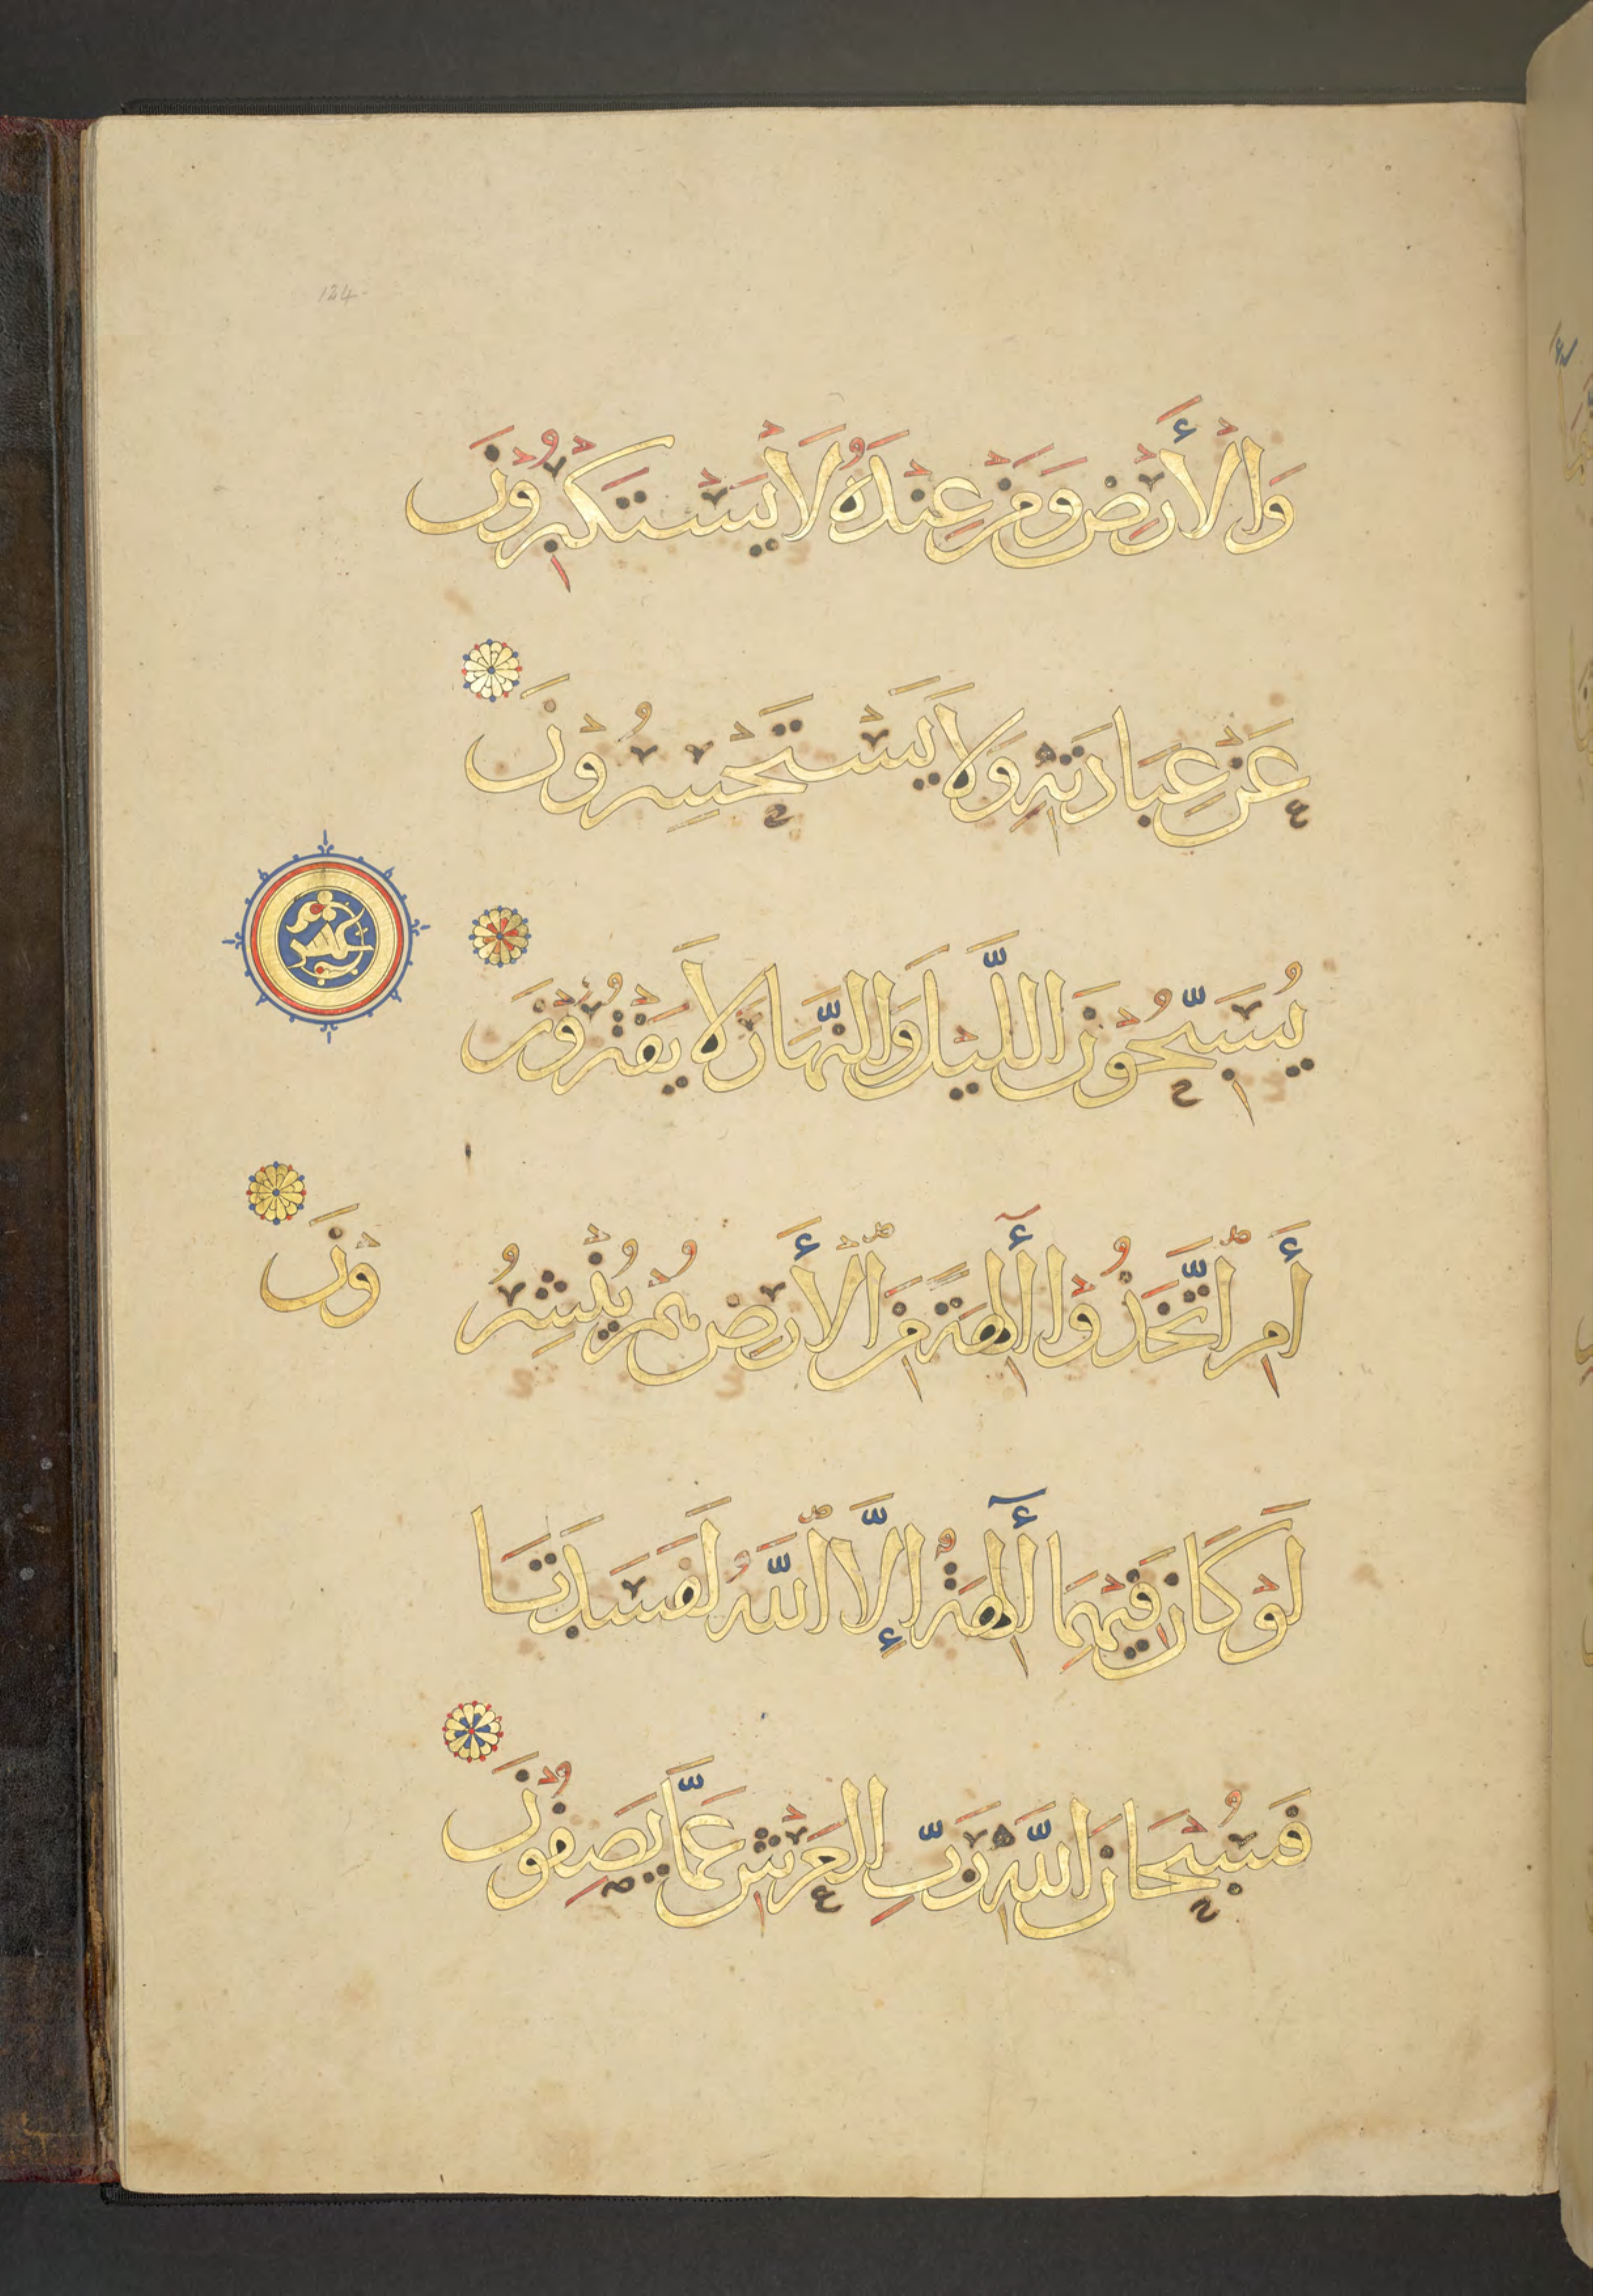 124
وَالْأَرْضِ وَمَنْ عِنْدَهُ لَا يَسْتَكْبِرُوْنَ
عَنْ عِبَادَتِهِ وَلَا يَسْتَحْسِرُوْنَ
عشر
يُسَبِّحُوْنَ اللَّيْلَ وَالنَّهَارَ لَا يَفْتُرُوْنَ
أَمِ اتَّخَذُوْا أٰلِهَةً مِنَ الْأَرْضِ هُمْ يُنْشِرُ وْنَ
لَوْ كَانَ فِيْهِمَا أٰلِهَةٌ إِلَّا اللَّهُ لَفَسَدَتَا
فَسُبْحَانَ اللَّهِ رَبِّ الْعَرْشِ عَمَّا يَصِفُوْنَ